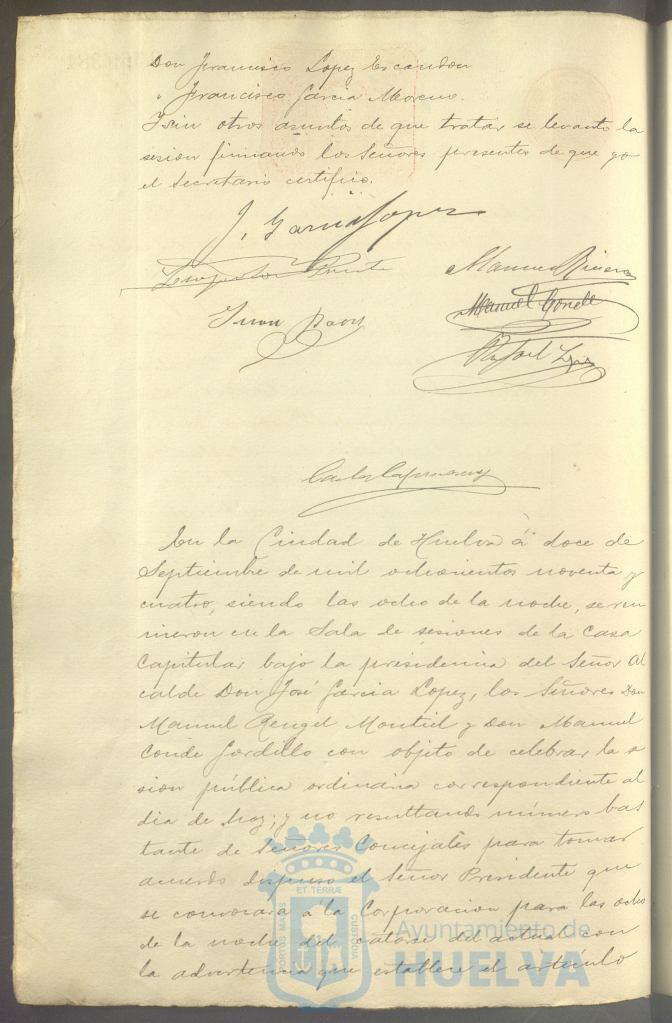 Don Francisco Lopez Escandon
" Francisco Garcia Moreno.
Y sin otros asuntos de que tratar se levantó la
sesion firmando los Señores presentes de que yo
el Secretario certifico.
J. Garcia Lopez
Manuel Rivera
Manuel Conde
Juan
Rafael
En la Ciudad de Huelva á doce de
Septiembre de mil ochocientos noventa y
cuatro, siendo las ocho de la noche, se reu
nieron en la Sala de sesiones de la Casa
Capitular bajo la presidencia del Señor Al
calde Don José Garcia Lopez, los Señores Don
Manuel Rengel Montiel y Don Manuel
Conde Gordillo con objeto de celebrar la se
sion pública ordinaria correspondiente al
dia de hoy; y no resultando número bas
tante de Señores Concejales para tomar
acuerdo dispuso el Señor Presidente que
se convocara á la Corporacion para las ocho
de la noche del catorce del actual con
la advertencia que establece el artículo
PORTUS MARIS ET TERRÆ CUSTODIA
Ayuntamiento de
HUELVA